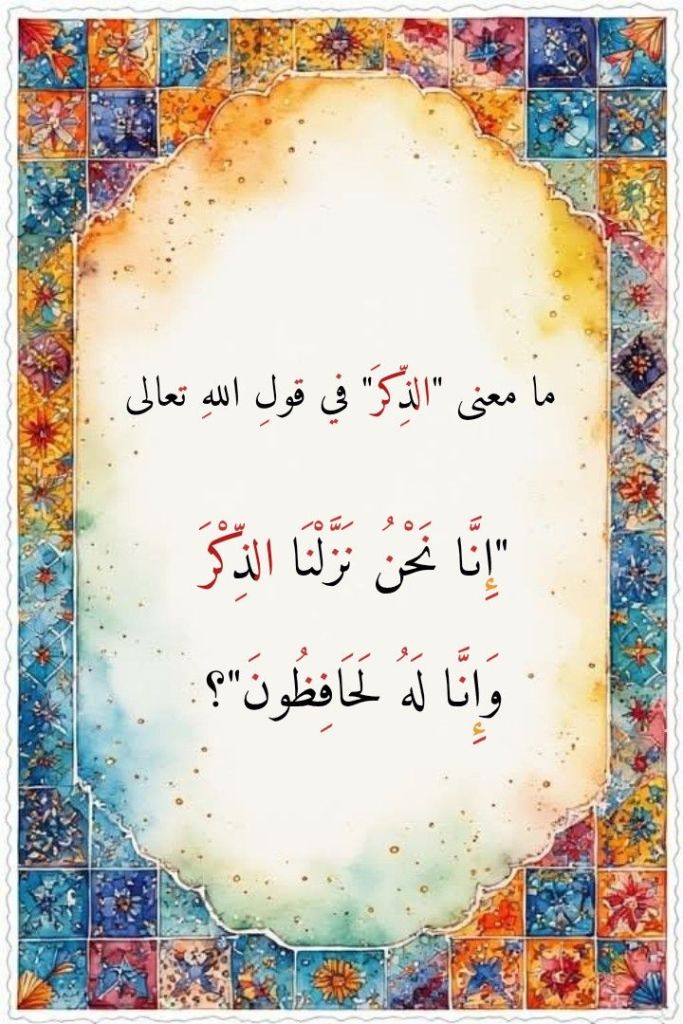 ما معنى "الذِّكرَ" في قولِ اللهِ تعالى
"إِنَّا نَحْنُ نَزَّلْنَا الذِّكْرَ
وَإِنَّا لَهُ لَحَافِظُونَ"؟